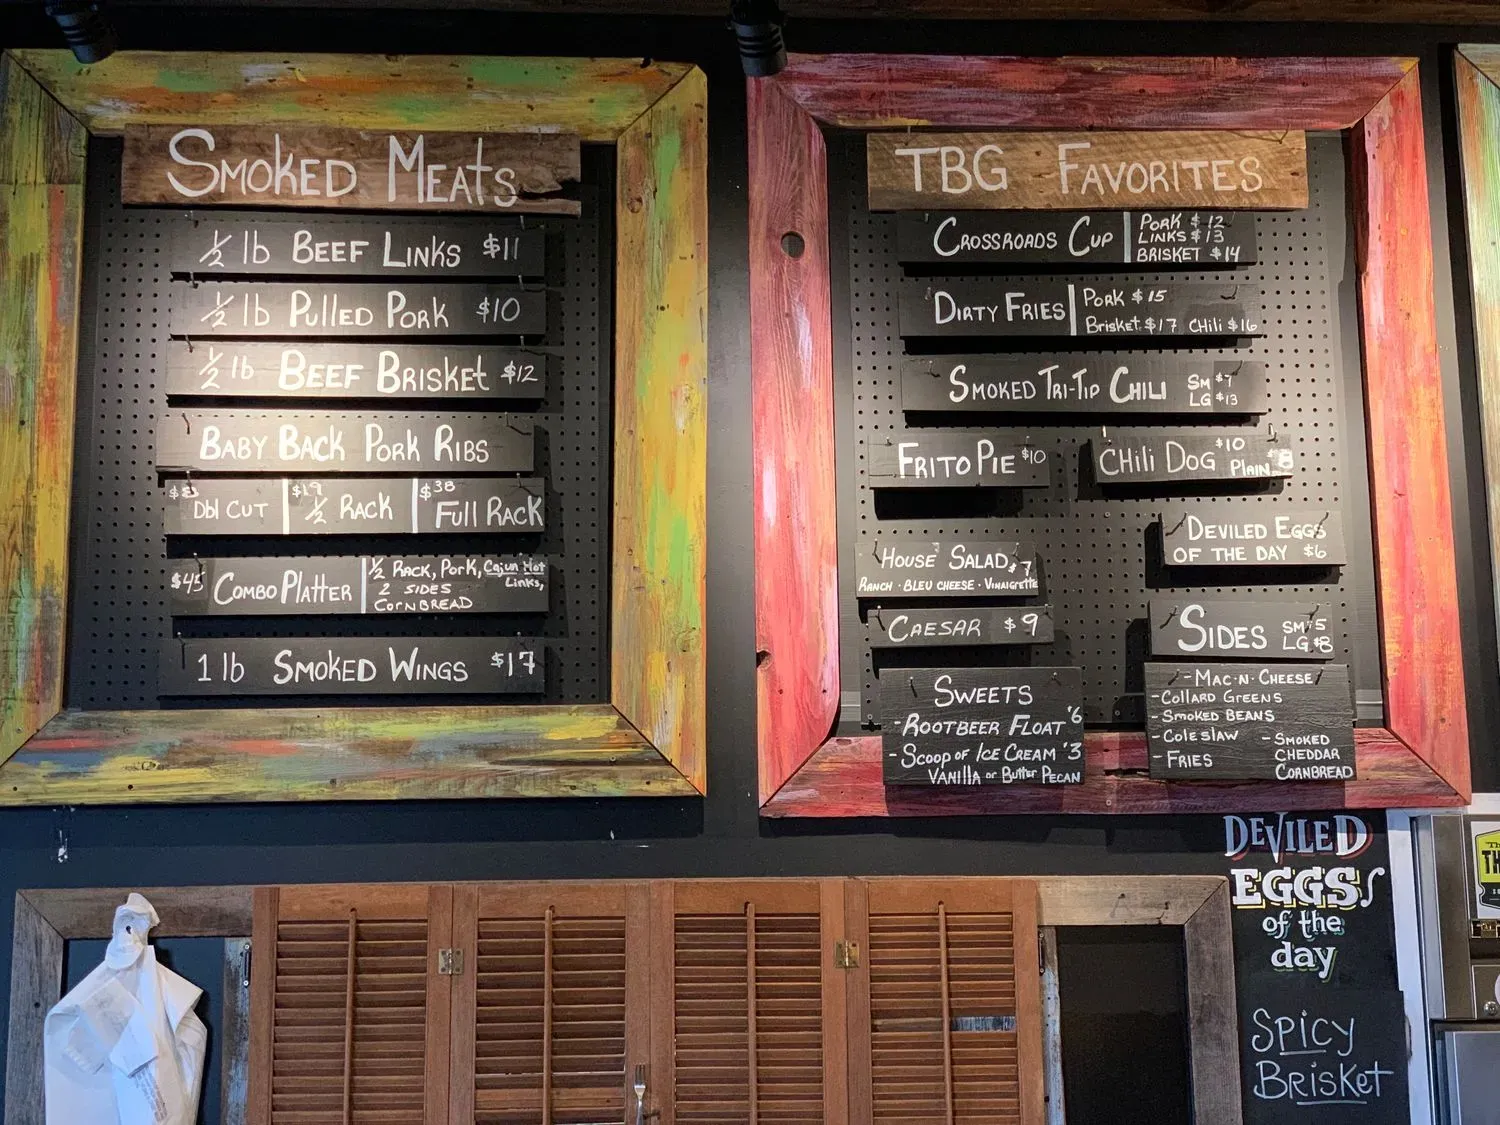 SMOKED MEATS
½ lb BEEF LINKS $11
½ lb PULLED PORK $10
½ lb BEEF BRISKET $12
BABY BACK PORK RIBS
Dbl CUT
$19 ½ RACK
$38 Full RACK
$45 COMBO PLATTER
½ RACK, PORK, Cajun Hot
Links,
2 SIDES
CORNBREAD
1 lb SMOKED WINGS $17
TBG FAVORITES
CROSSROADS CUP
PORK $12
LINKS $13
BRISKET $14
DIRTY FRIES
PORK $15
Brisket $17 CHili $16
SMOKED TRI-TIP CHILI
SM $7
LG $13
FRITO PIE $10
CHili DOG $10
PLAIN $8
DEVILED EGGS
OF THE DAY $6
HOUSE SALAD $7
RANCH · BLEU CHEESE · VINAIGRETTE
CAESAR $9
SIDES
SM $5
LG $8
SWEETS
- ROOTBEER FLOAT $6
- SCOOP OF ICE CREAM $3
VANILLA OR Butter PECAN
- MAC·N·CHEESE
- COLLARD GREENS
- SMOKED BEANS
- COLESLAW
- FRIES
- SMOKED
CHEDDAR
CORNBREAD
DEVILED
EGGS
of the
day
SPICY
BRISKET